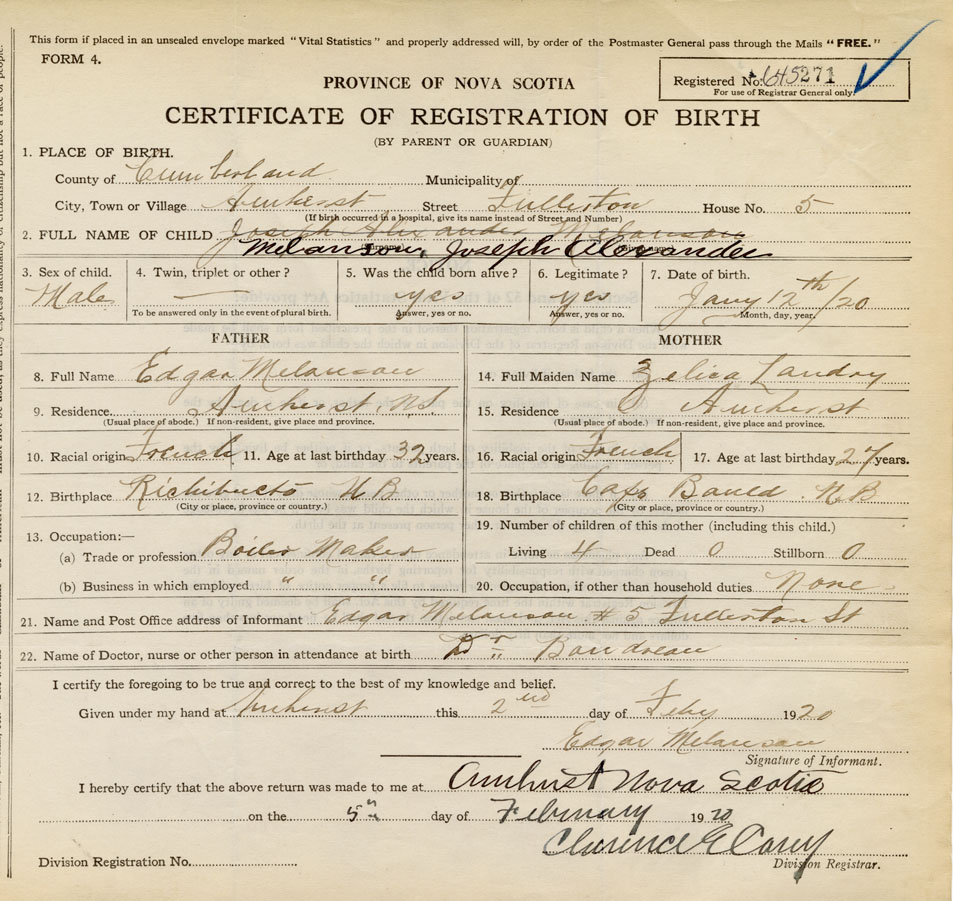 This form if placed in an unsealed envelope marked "Vital Statistics" and properly addressed will, by order of the Postmaster General pass through the Mails "FREE."
FORM 4.
Registered No. 645271
For use of Registrar General only.
PROVINCE OF NOVA SCOTIA
CERTIFICATE OF REGISTRATION OF BIRTH
(BY PARENT OR GUARDIAN)
1. PLACE OF BIRTH.
County of Cumberland Municipality of
City, Town or Village Amherst Street Fullerton House No. 5
(If birth occurred in a hospital, give its name instead of Street and Number)
2. FULL NAME OF CHILD Joseph Alexander Melanson
Melanson, Joseph Alexander
3. Sex of child. 4. Twin, triplet or other? 5. Was the child born alive? 6. Legitimate? 7. Date of birth.
Male — yes yes Jany 12th/20
To be answered only in the event of plural birth. Answer, yes or no. Answer, yes or no. Month, day, year.
FATHER MOTHER
8. Full Name Edgar Melanson 14. Full Maiden Name Zelica Landry
9. Residence. Amherst, N.S. 15. Residence Amherst
(Usual place of abode.) If non-resident, give place and province. (Usual place of abode.) If non-resident, give place and province.
10. Racial origin French 11. Age at last birthday 32 years. 16. Racial origin French 17. Age at last birthday 27 years.
12. Birthplace Richibucto N B 18. Birthplace Cape Bauld. N B
(City or place, province or country.) (City or place, province or country.)
13. Occupation:— 19. Number of children of this mother (including this child.)
(a) Trade or profession Boiler Maker Living 4 Dead 0 Stillborn 0
(b) Business in which employed " " 20. Occupation, if other than household duties None
21. Name and Post Office address of Informant Edgar Melanson # 5 Fullerton St
22. Name of Doctor, nurse or other person in attendance at birth Dr Boudreau
I certify the foregoing to be true and correct to the best of my knowledge and belief.
Given under my hand at Amherst this 2nd day of Feby 1920
Edgar Melanson
Signature of Informant.
I hereby certify that the above return was made to me at Amherst Nova Scotia
on the 5th day of February 1920
Clarence E Casey
Division Registrar.
Division Registration No.